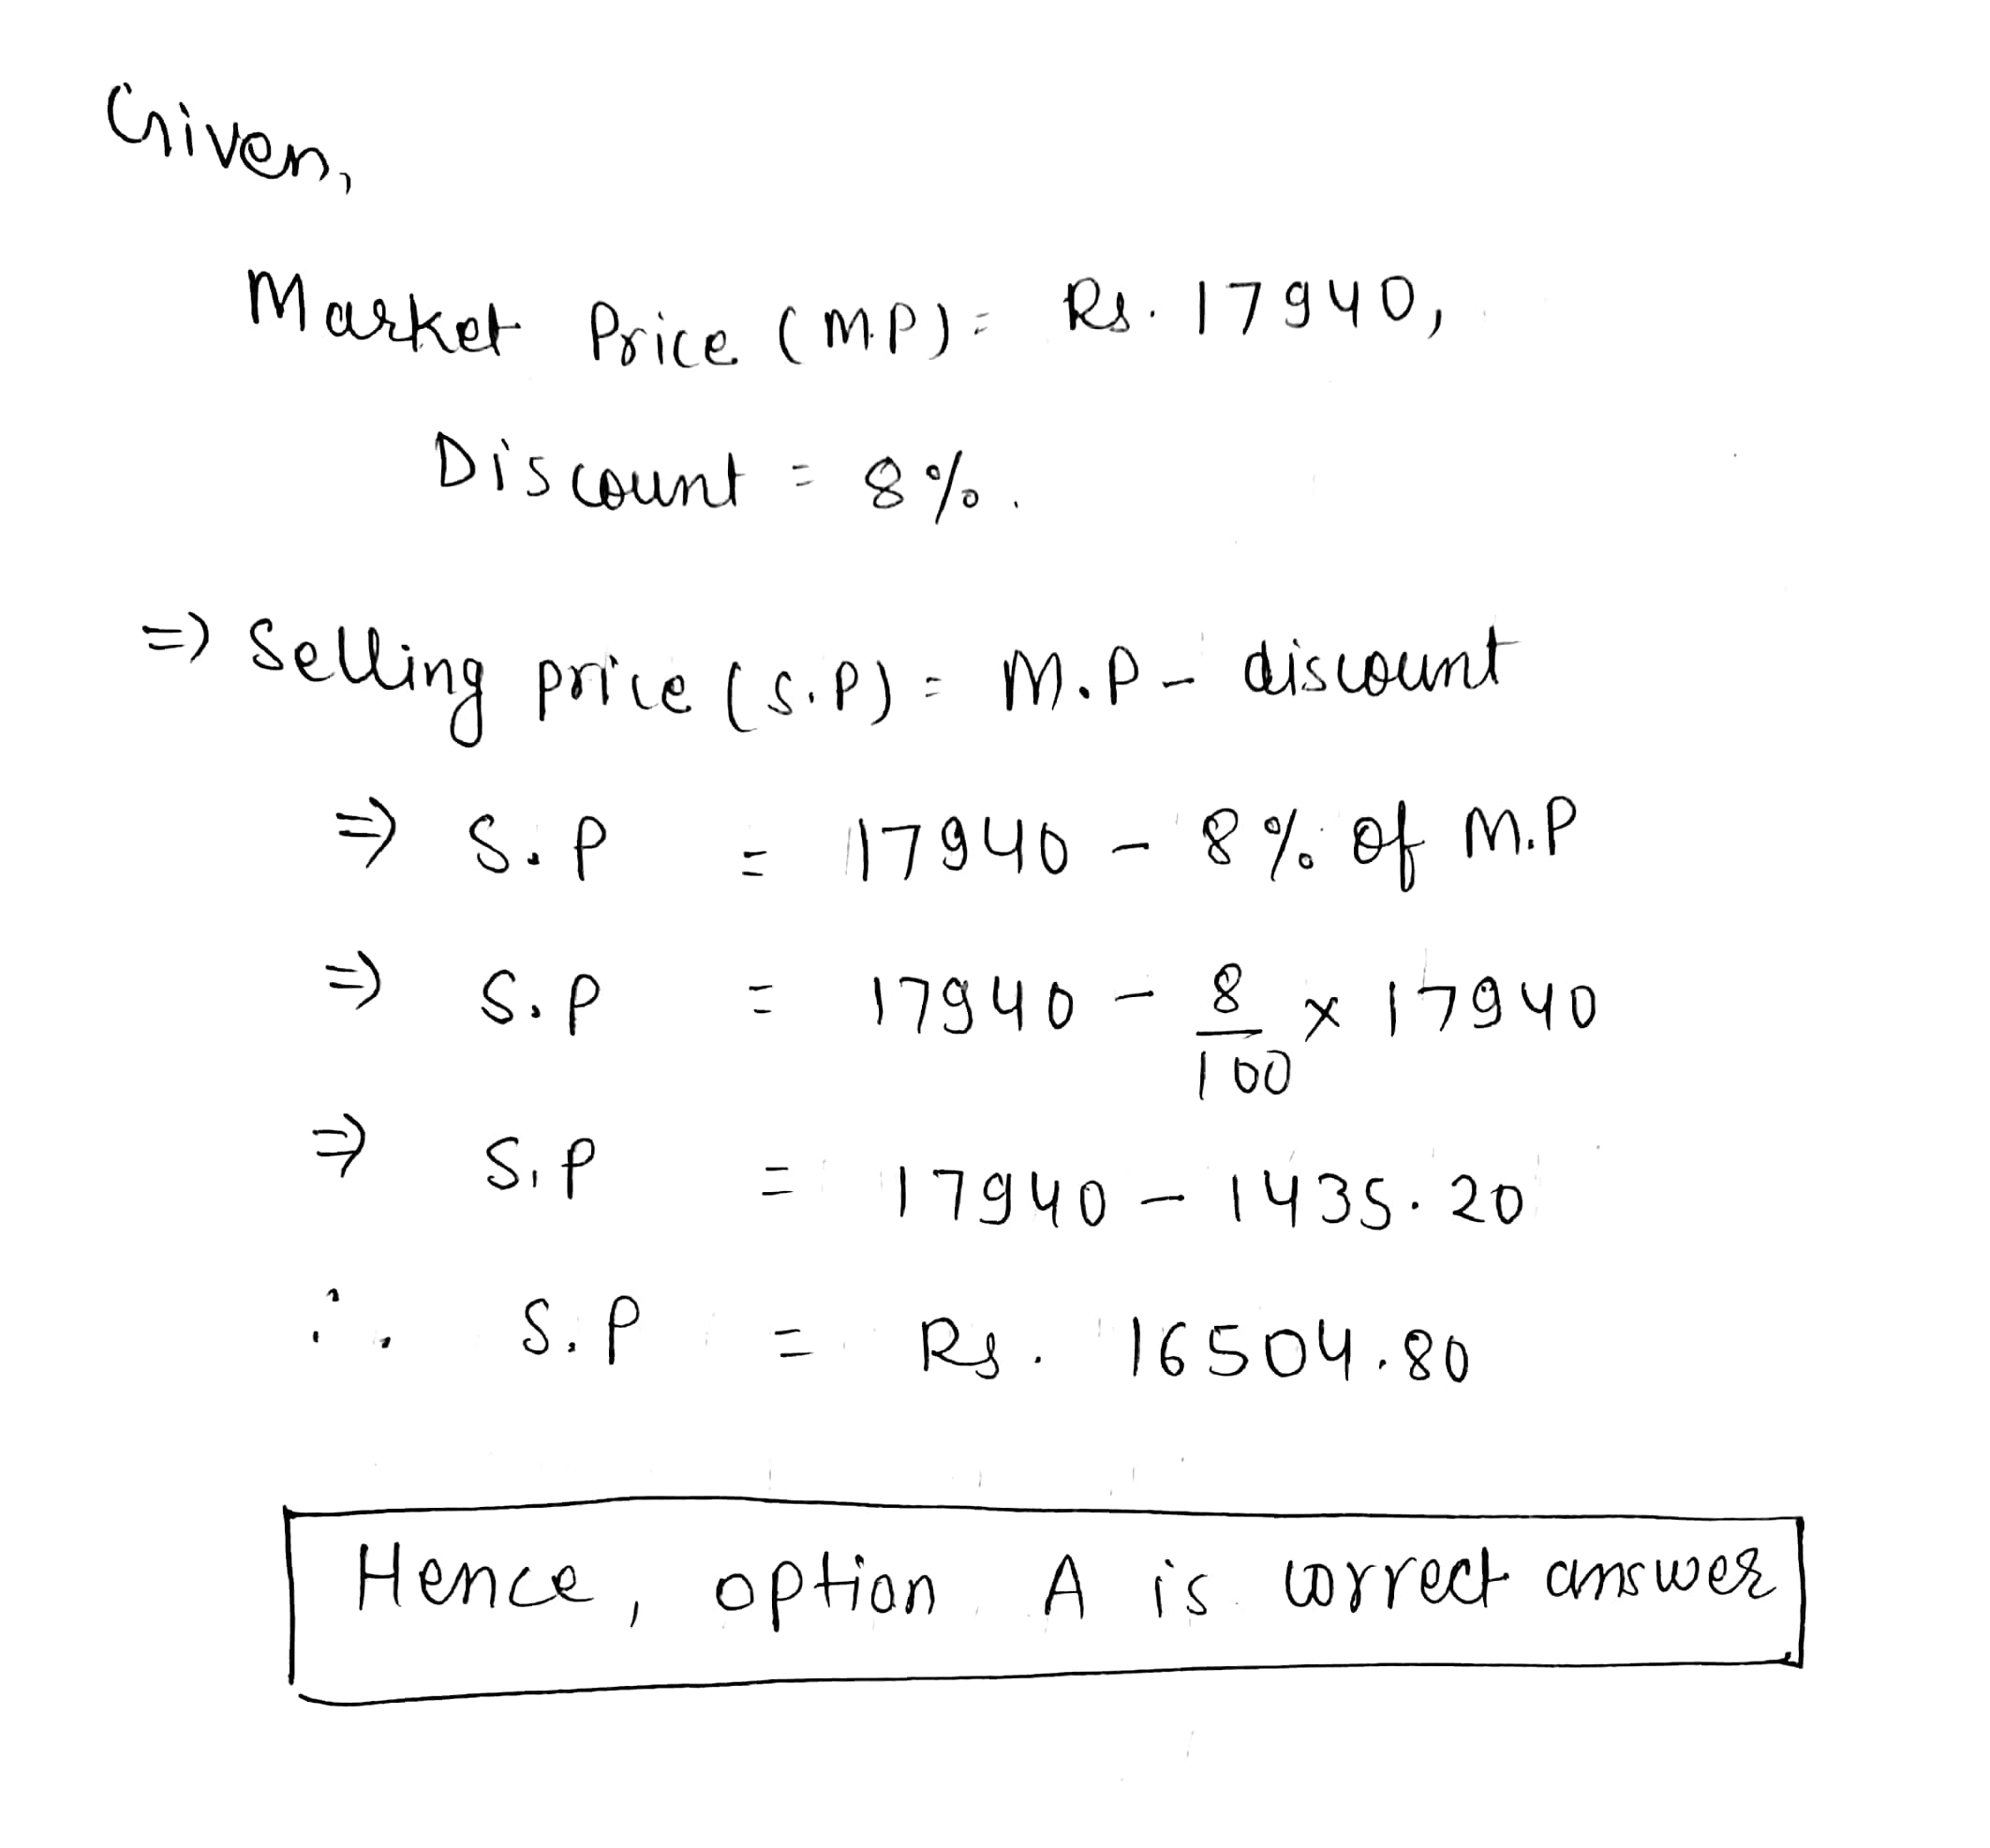 Given,
Market Price (M.P) = Rs. 17940,
Discount = 8%.
=> Selling price (S.P) = M.P - discount
=> S.P = 17940 - 8% of M.P
=> S.P = 17940 - 8/100 x 17940
=> S.P = 17940 - 1435.20
∴ S.P = Rs. 16504.80
Hence, option A is correct answer